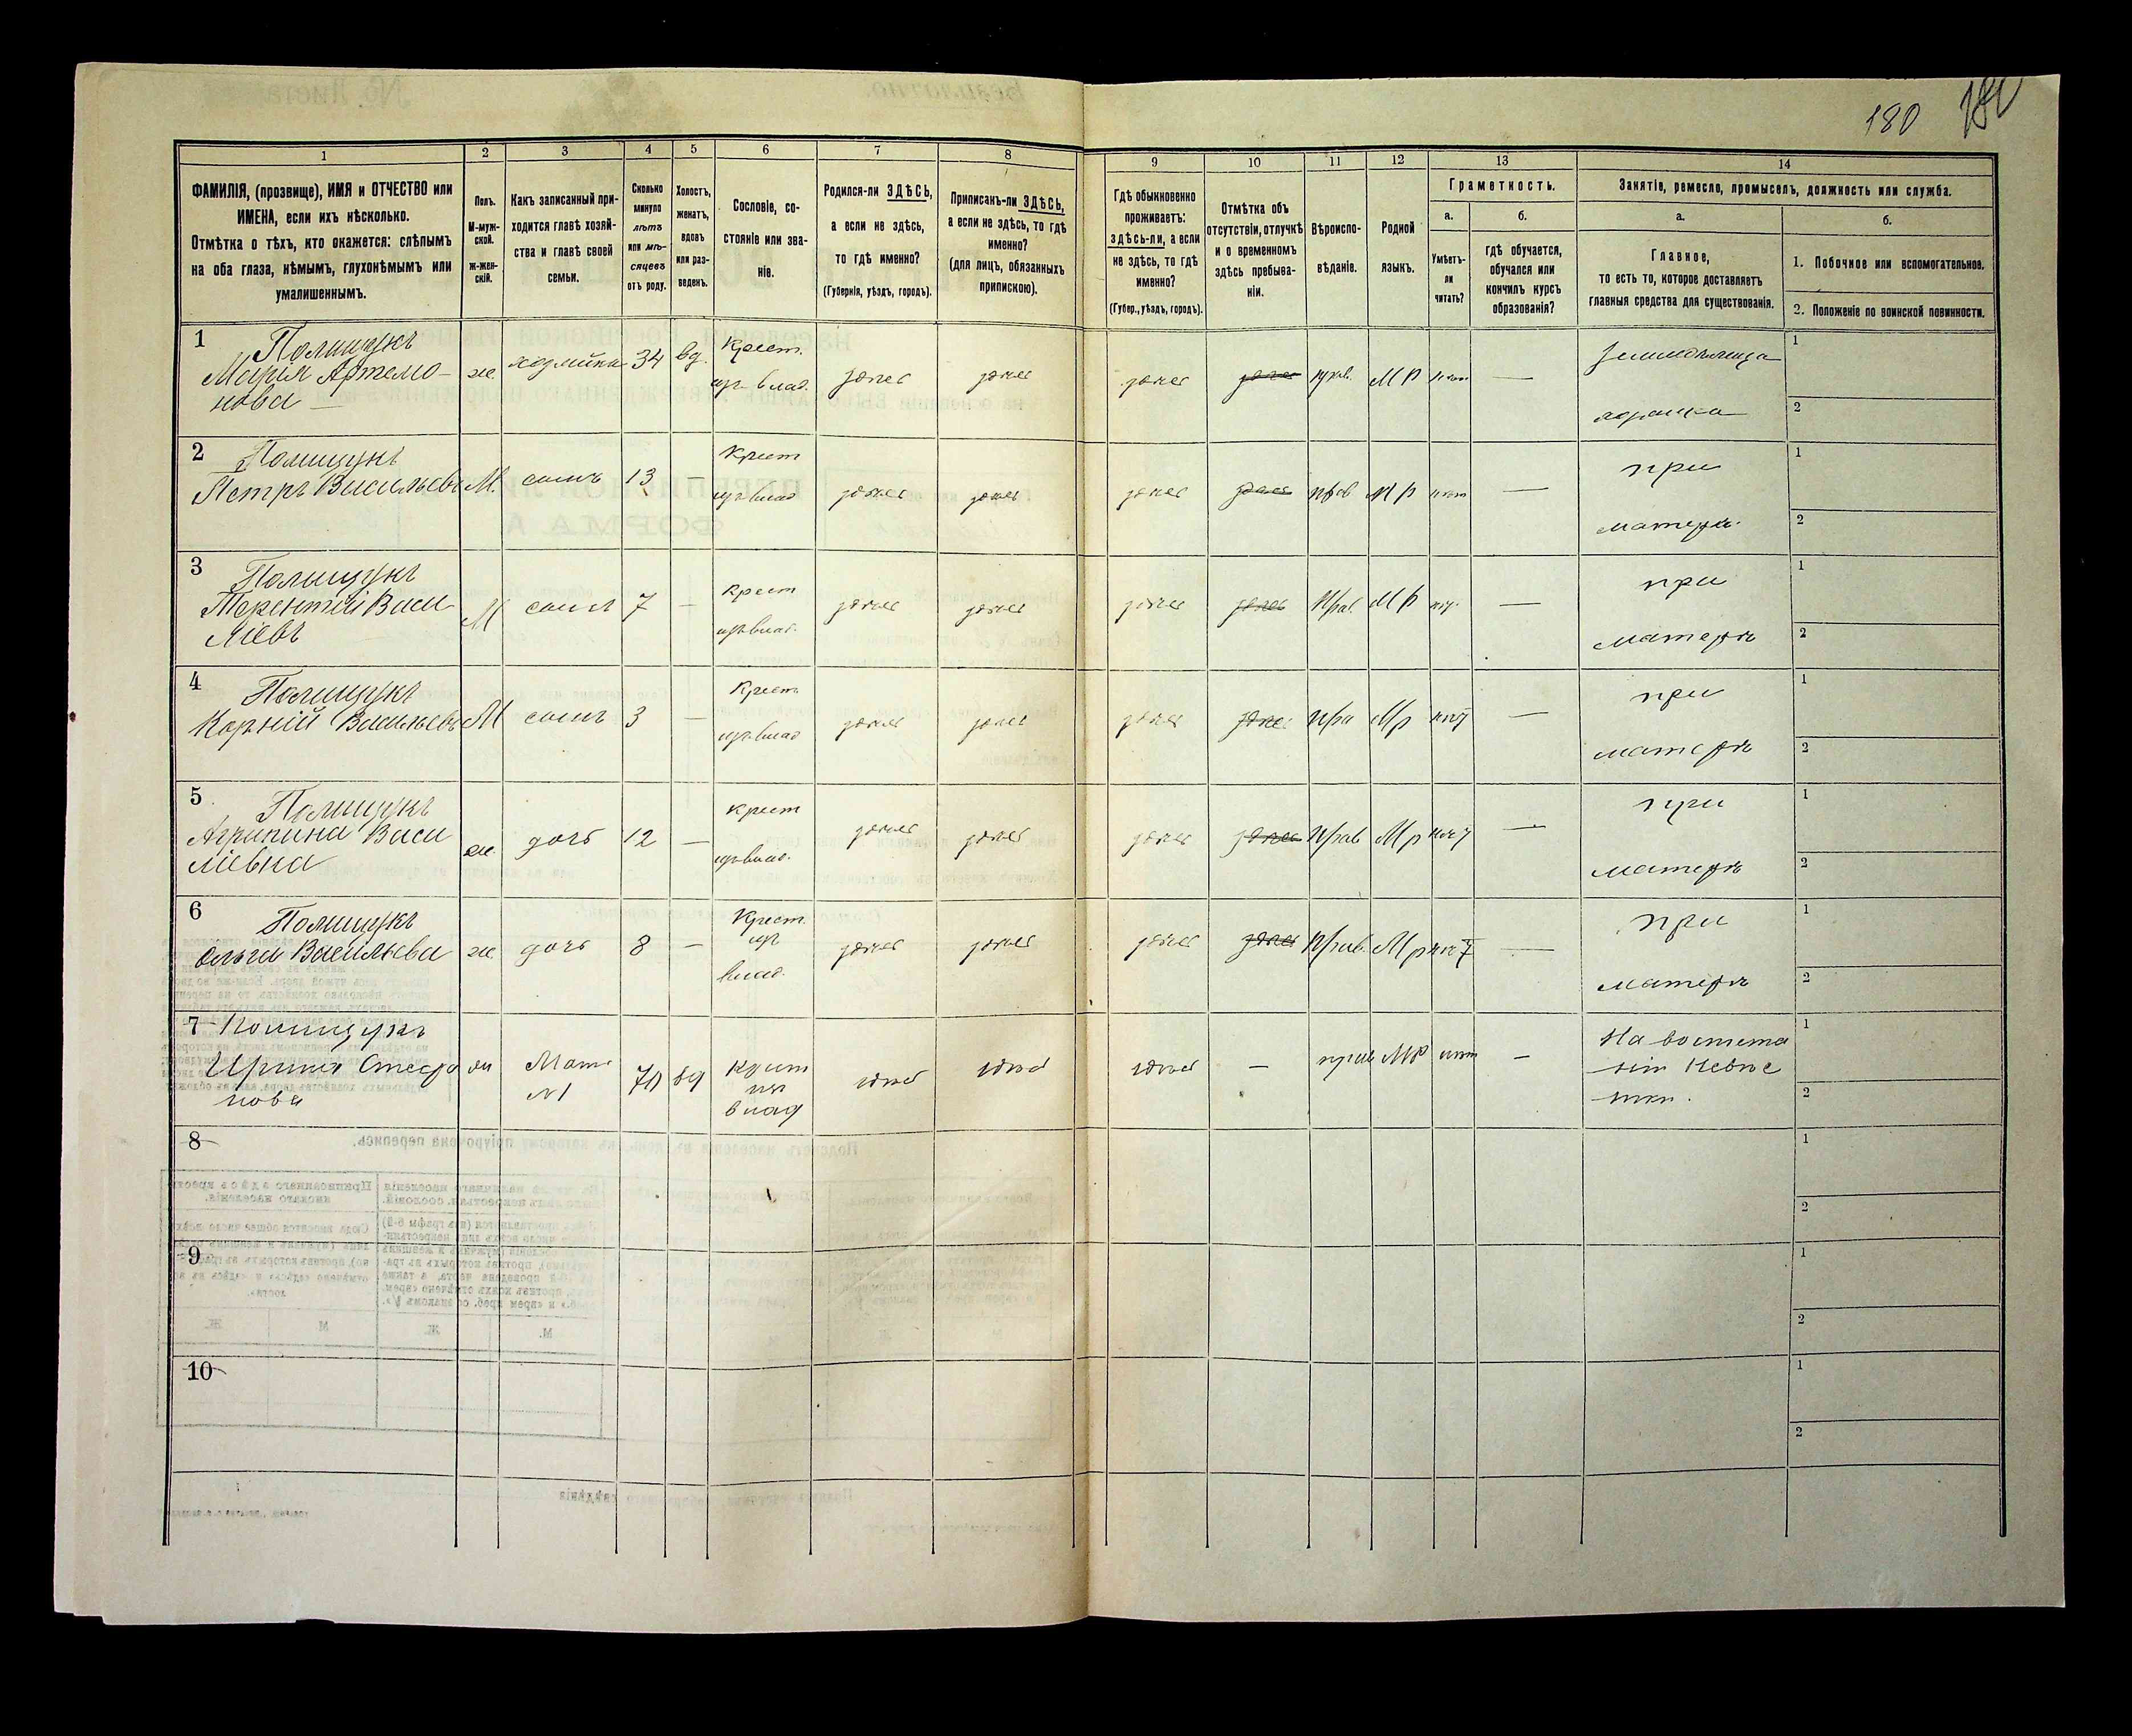 180 180
1
2
3
4
5
6
7
8
9
10
11
12
13
14
ФАМИЛІЯ, (прозвище), ИМЯ и ОТЧЕСТВО или
ИМЕНА, если ихъ нѣсколько.
Отмѣтка о тѣхъ, кто окажется: слѣпымъ
на оба глаза, нѣмымъ, глухонѣмымъ или
умалишеннымъ.
Полъ.
М-муж-
ской.
ж-жен-
скій.
Какъ записанный при-
ходится главѣ хозяй-
ства и главѣ своей
семьи.
Сколько
минуло
лѣтъ
или мѣ-
сяцевъ
отъ роду.
Холостъ,
женатъ,
вдовъ
или раз-
веденъ.
Сословіе, со-
стояніе или зва-
ніе.
Родился-ли ЗДѢСЬ,
а если не здѣсь,
то гдѣ именно?
(Губернія, уѣздъ, городъ).
Приписанъ-ли ЗДѢСЬ,
а если не здѣсь, то гдѣ
именно?
(для лицъ, обязанныхъ
припискою).
Гдѣ обыкновенно
проживаетъ:
здѣсь-ли, а если
не здѣсь, то гдѣ
именно?
(Губер., уѣздъ, городъ).
Отмѣтка объ
отсутствіи, отлучкѣ
и о временномъ
здѣсь пребыва-
ніи.
Вѣроиспо-
вѣданіе.
Родной
языкъ.
Грамотность.
а.
Умѣетъ-
ли
читать?
б.
гдѣ обучается,
обучался или
кончилъ курсъ
образованія?
Занятіе, ремесло, промыселъ, должность или служба.
а.
Главное,
то есть то, которое доставляетъ
главныя средства для существованія.
б.
1. Побочное или вспомогательное.
2. Положеніе по воинской повинности.
1 Полищукъ
Марія Артемо-
нова
ж. хозяйка 34 вд. Крест. изъ влад. здѣсь здѣсь здѣсь здѣсь прав. М Р нѣт — 1
2
2 Полищукъ
Петръ Васильевъ М. сынъ 13 — Крест изъ влад здѣсь здѣсь здѣсь здѣсь прав М р нѣт — при 1
матери. 2
3 Полищукъ
Терентій Васи
ліевъ
М сынъ 7 — Крест изъ влад. здѣсь здѣсь здѣсь здѣсь Прав М р — при 1
матери 2
4 Полищукъ
Корній Васильевъ М сынъ 3 — Крест изъ влад здѣсь здѣсь здѣсь здѣсь Пра М р нѣт — при 1
матери 2
5 Полищукъ
Агрипина Васи
ліевна
ж. дочь 12 — крест изъ влад. здѣсь здѣсь здѣсь здѣсь Прав М р нѣт — при 1
матери 2
6 Полищукъ
Ольга Васильева ж. дочь 8 — Крест. изъ влад. здѣсь здѣсь здѣсь здѣсь Прав. М р нѣт — при 1
матери 2
7 Полищукъ
Ирина Стефа
нова
70 вд влад здѣсь здѣсь здѣсь — прав МР нѣт — 1
2
8 1
2
9 1
2
10 1
2